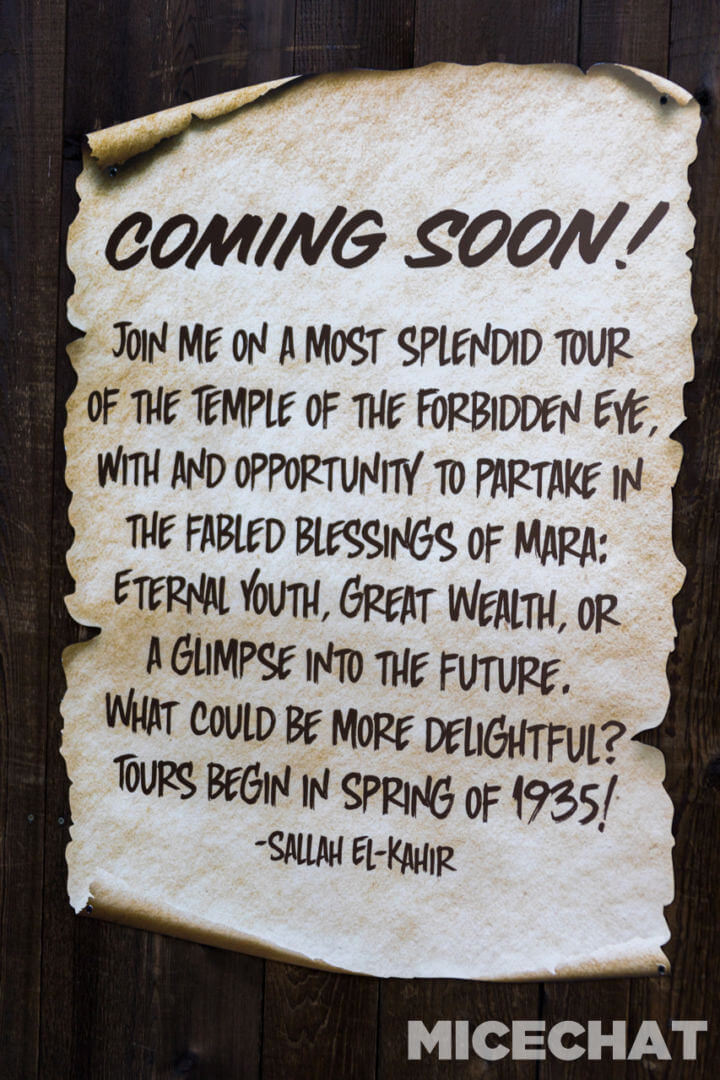 COMING SOON!
JOIN ME ON A MOST SPLENDID TOUR
OF THE TEMPLE OF THE FORBIDDEN EYE,
WITH AND OPPORTUNITY TO PARTAKE IN
THE FABLED BLESSINGS OF MARA:
ETERNAL YOUTH, GREAT WEALTH, OR
A GLIMPSE INTO THE FUTURE.
WHAT COULD BE MORE DELIGHTFUL?
TOURS BEGIN IN SPRING OF 1935!
-SALLAH EL-KAHIR
MICECHAT